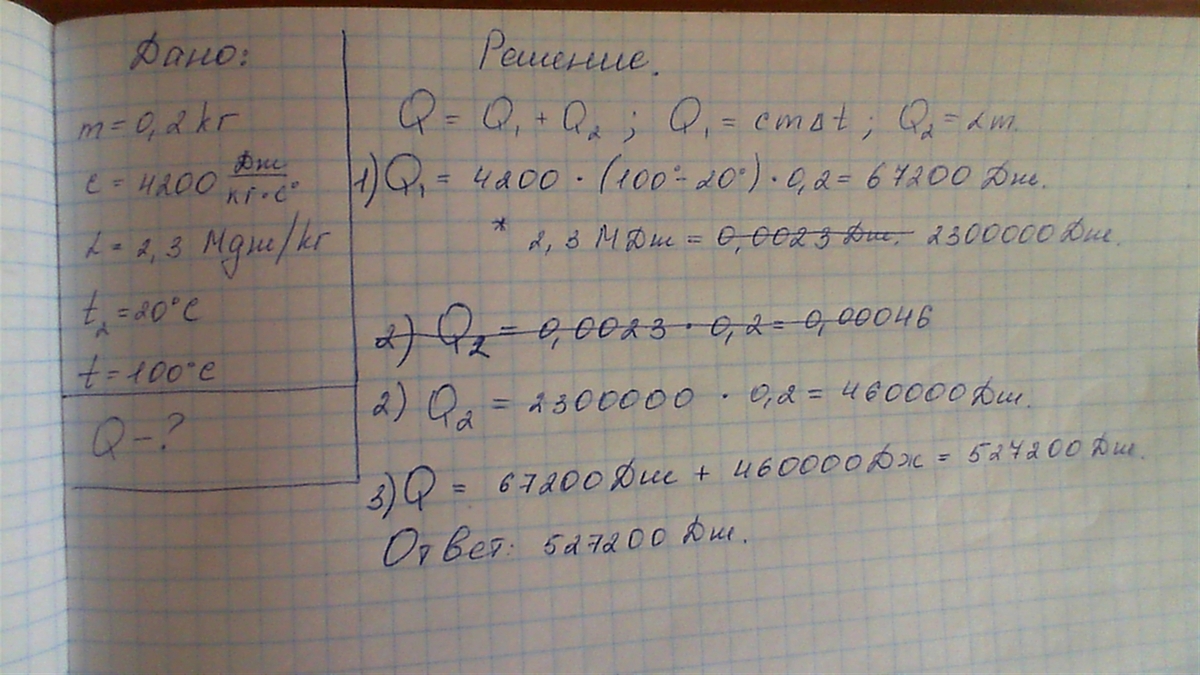 Дано:
m = 0,2 кг
c = 4200 Дж/кг·с°
L = 2,3 Мдж/кг
t₂ = 20°C
t = 100°C
Q - ?
Решение.
Q = Q₁ + Q₂ ; Q₁ = cmΔt ; Q₂ = Lm.
1) Q₁ = 4200 · (100° - 20°) · 0,2 = 67200 Дж.
* 2,3 МДж = 0,0023 Дж. 2300000 Дж.
2) Q₂ = 0,0023 · 0,2 = 0,00046
2) Q₂ = 2300000 · 0,2 = 460000 Дж.
3) Q = 67200 Дж + 460000 Дж = 527200 Дж.
Ответ: 527200 Дж.